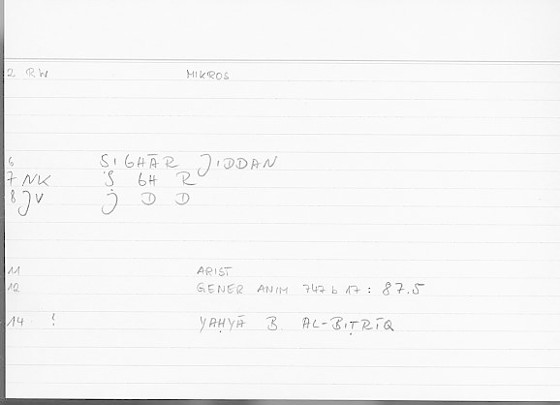 2 RW MIKROS
6 ṢIGHĀR JIDDAN
7 NK Ṣ GH R
8 JV J D D
11 ARIST
12 GENER ANIM 747 b 17 : 87.5
14 ! YAḤYĀ B. AL-BIṬRĪQ